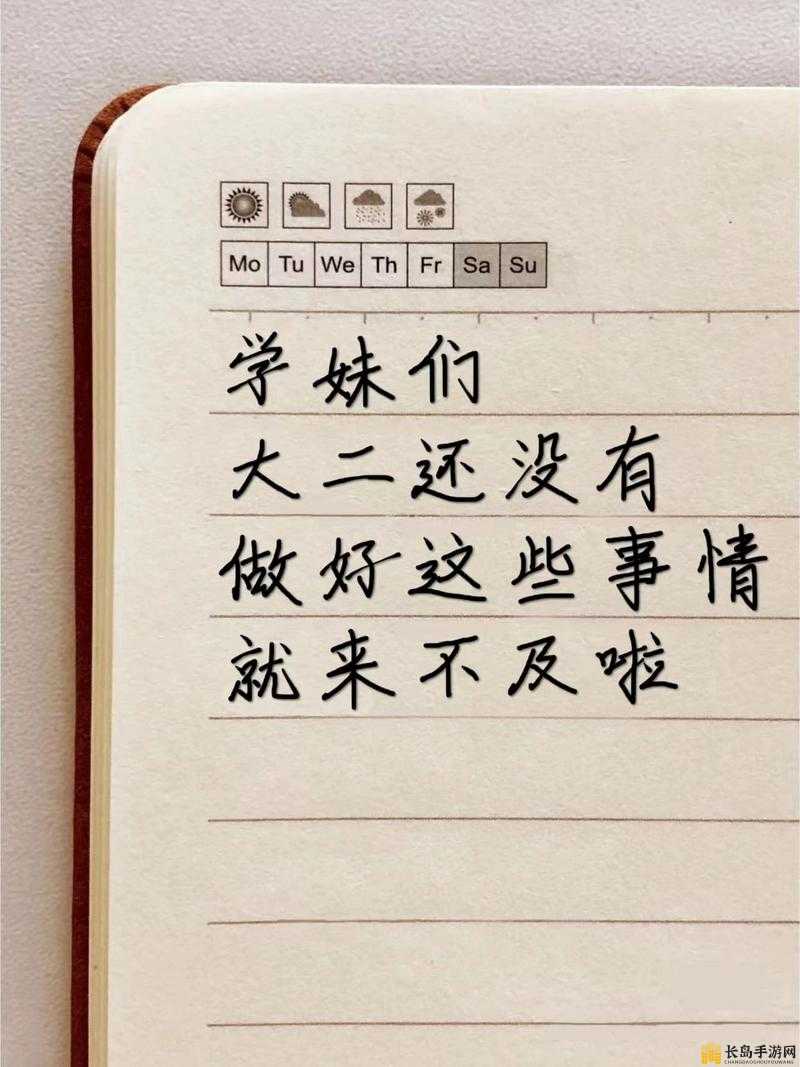 Mo Tu We Th Fr Sa Su
学妹们
大二还没有
做好这些事情
就来不及啦
长岛手游网
CHANGDAOSHOUYOUWANG